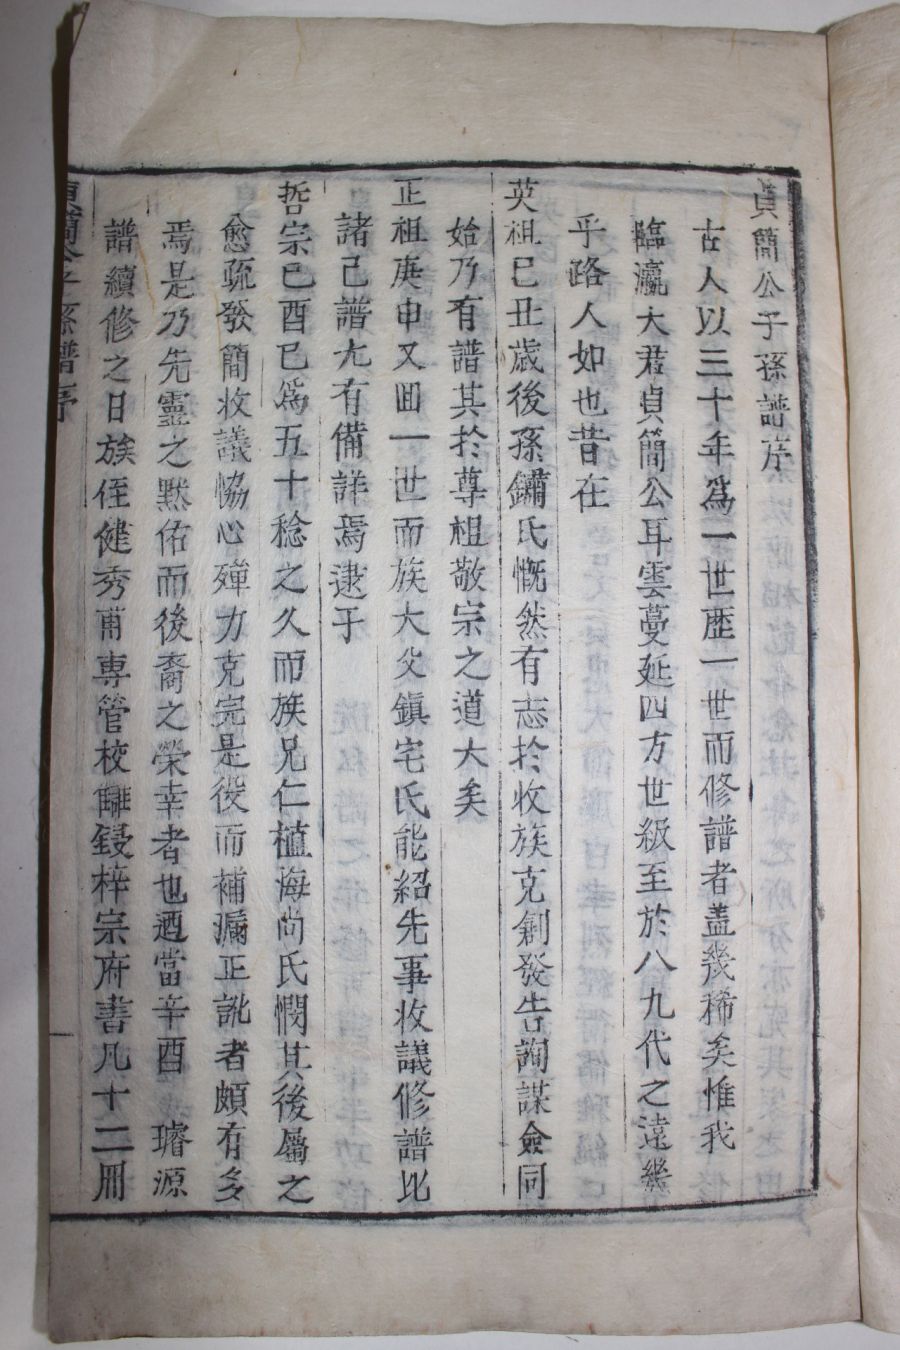 貞簡公子孫譜序
古人以三十年爲一世歷一世而修譜者盖幾稀矣惟我
臨瀛大君貞簡公耳雲蔓延四方世級至於八九代之遠幾
乎路人如也昔在
英祖己丑歲後孫鏽氏慨然有志於收族克創發告詢謀僉同
始乃有譜其於尊祖敬宗之道大矣
正祖庚申又回一世而族大父鎭宅氏能紹先事收議修譜比
諸己譜尤有備詳焉逮于
哲宗己酉已爲五十稔之久而族兄仁植海尙氏憫其後屬之
愈疏發簡收議恊心殫力克完是役而補漏正訛者頗有多
焉是乃先靈之黙佑而後裔之榮幸者也迺當辛酉 璿源
譜續修之日族侄健秀甫專管校讎鋟梓宗府書凡十二冊
貞簡公子孫譜序